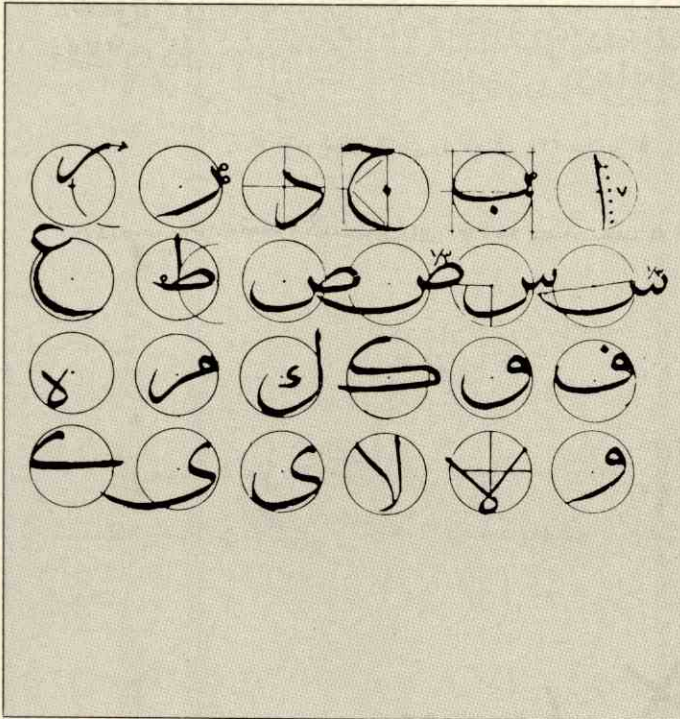 ا ٧ ب ج د ر ر
س س ص ص ط ع
ف ٯ ك ك م ه
و لا لا ى ى ے